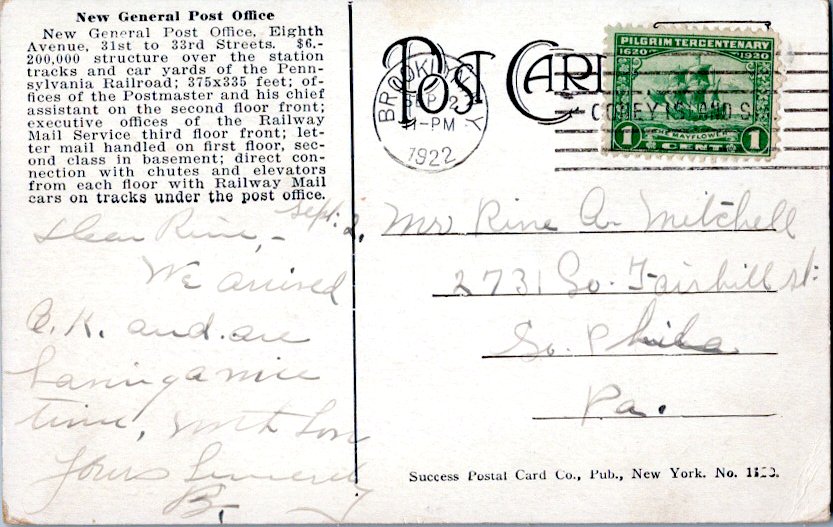 New General Post Office
New General Post Office, Eighth
Avenue, 31st to 33rd Streets. $6.-
200,000 structure over the station
tracks and car yards of the Penn-
sylvania Railroad; 375x335 feet; of-
fices of the Postmaster and his chief
assistant on the second floor front;
executive offices of the Railway
Mail Service third floor front; let-
ter mail handled on first floor, sec-
ond class in basement; direct con-
nection with chutes and elevators
from each floor with Railway Mail
cars on tracks under the post office.
Sept. 2,
Dear Rine,-
We arrived
O.K. and are
having a nice
time, with love
Yours Sincerely
B,
POST CARD
BROOKLYN, N.Y.
SEP 2
11-PM
1922
CONEY ISLAND S
PILGRIM TERCENTENARY
1620 1920
THE MAYFLOWER
1 CENT 1
Mr Rine A. Mitchell
2731 So. Fairhill st.
So. Phila
Pa.
Success Postal Card Co., Pub., New York. No.